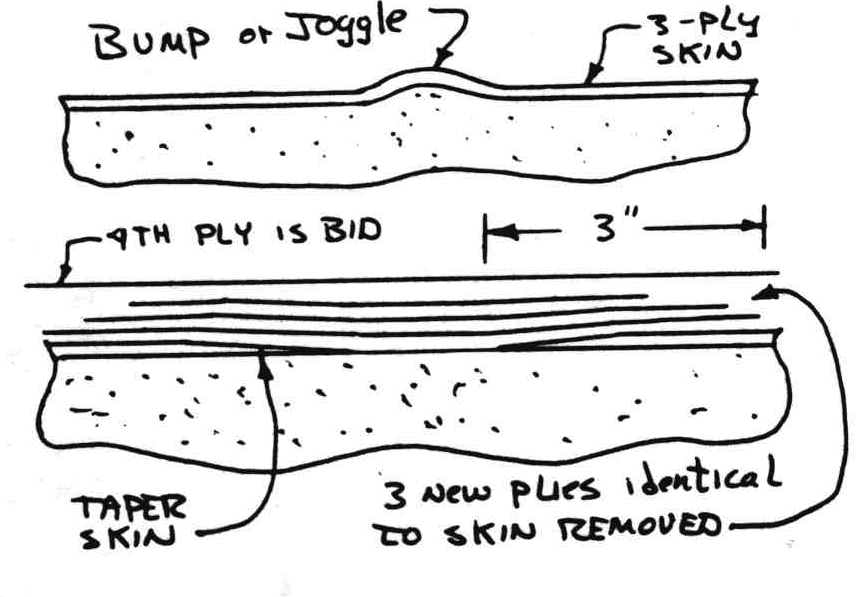 BUMP or Joggle
3-PLY
SKIN
4TH PLY IS BID
3"
TAPER
SKIN
3 New plies identical
TO SKIN REMOVED